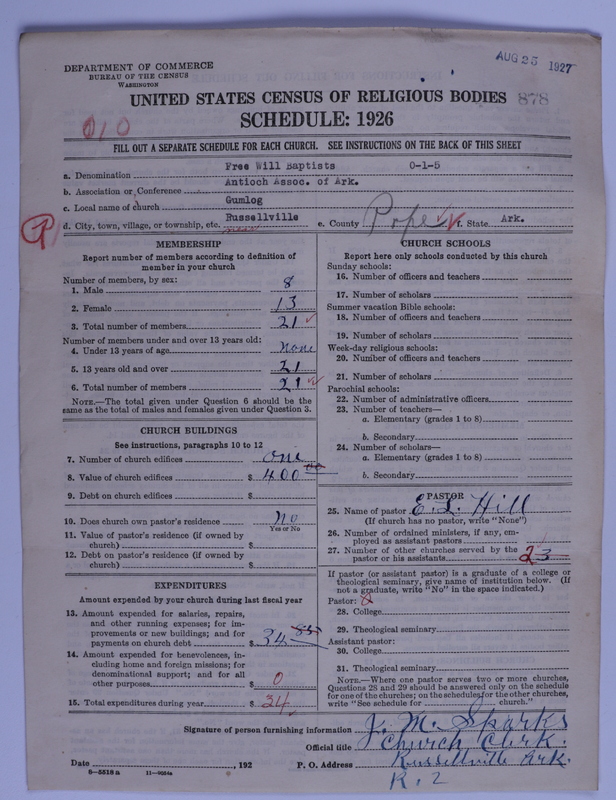 AUG 25 1927
DEPARTMENT OF COMMERCE
BUREAU OF THE CENSUS
WASHINGTON
UNITED STATES CENSUS OF RELIGIOUS BODIES 878
SCHEDULE: 1926
010
FILL OUT A SEPARATE SCHEDULE FOR EACH CHURCH. SEE INSTRUCTIONS ON THE BACK OF THIS SHEET
a. Denomination Free Will Baptists 0-1-5
b. Association or Conference Antioch Assoc. of Ark.
c. Local name of church Gumlog
d. City, town, village, or township, etc. Russellville e. County Pope f. State Ark.
MEMBERSHIP
Report number of members according to definition of
member in your church
Number of members, by sex:
1. Male 8
2. Female 13
3. Total number of members 21
Number of members under and over 13 years old:
4. Under 13 years of age none
5. 13 years old and over 21
6. Total number of members 21
NOTE.—The total given under Question 6 should be the
same as the total of males and females given under Question 3.
CHURCH BUILDINGS
See instructions, paragraphs 10 to 12
7. Number of church edifices one
8. Value of church edifices $ 400 00
9. Debt on church edifices $
10. Does church own pastor's residence No
Yes or No
11. Value of pastor's residence (if owned by
church) $
12. Debt on pastor's residence (if owned by
church) $
EXPENDITURES
Amount expended by your church during last fiscal year
13. Amount expended for salaries, repairs,
and other running expenses; for im-
provements or new buildings; and for
payments on church debt $ 34
14. Amount expended for benevolences, in-
cluding home and foreign missions; for
denominational support; and for all
other purposes $ 0
15. Total expenditures during year $ 34
CHURCH SCHOOLS
Report here only schools conducted by this church
Sunday schools:
16. Number of officers and teachers
17. Number of scholars
Summer vacation Bible schools:
18. Number of officers and teachers
19. Number of scholars
Week-day religious schools:
20. Number of officers and teachers
21. Number of scholars
Parochial schools:
22. Number of administrative officers
23. Number of teachers—
a. Elementary (grades 1 to 8)
b. Secondary
24. Number of scholars—
a. Elementary (grades 1 to 8)
b. Secondary
PASTOR
25. Name of pastor E. L. Hill
(If church has no pastor, write "None")
26. Number of ordained ministers, if any, em-
ployed as assistant pastors
27. Number of other churches served by the
pastor or his assistants 3
If pastor (or assistant pastor) is a graduate of a college or
theological seminary, give name of institution below. (If
not a graduate, write "No" in the space indicated.)
Pastor:
28. College
29. Theological seminary
Assistant pastor:
30. College
31. Theological seminary
NOTE.—Where one pastor serves two or more churches,
Questions 28 and 29 should be answered only on the schedule
for one of the churches; on the schedules for the other churches,
write "See schedule for church."
Signature of person furnishing information J. M. Sparks
Official title Church Clerk.
Date , 192 P. O. Address Russellville Ark.
R. 2
8-5518a 11-9024a